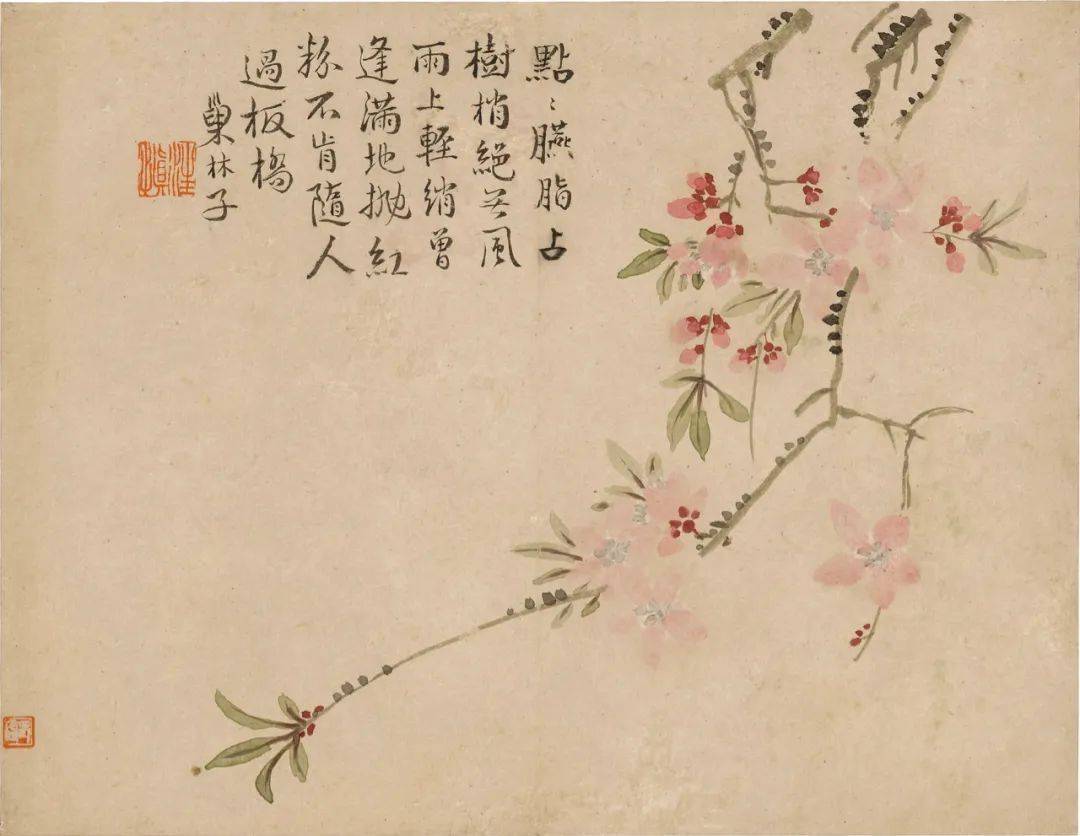 點〻臙脂占
樹梢絕無風
雨上輕綃曾
逢滿地拋紅
粉不肯隨人
過板橋
巢林子